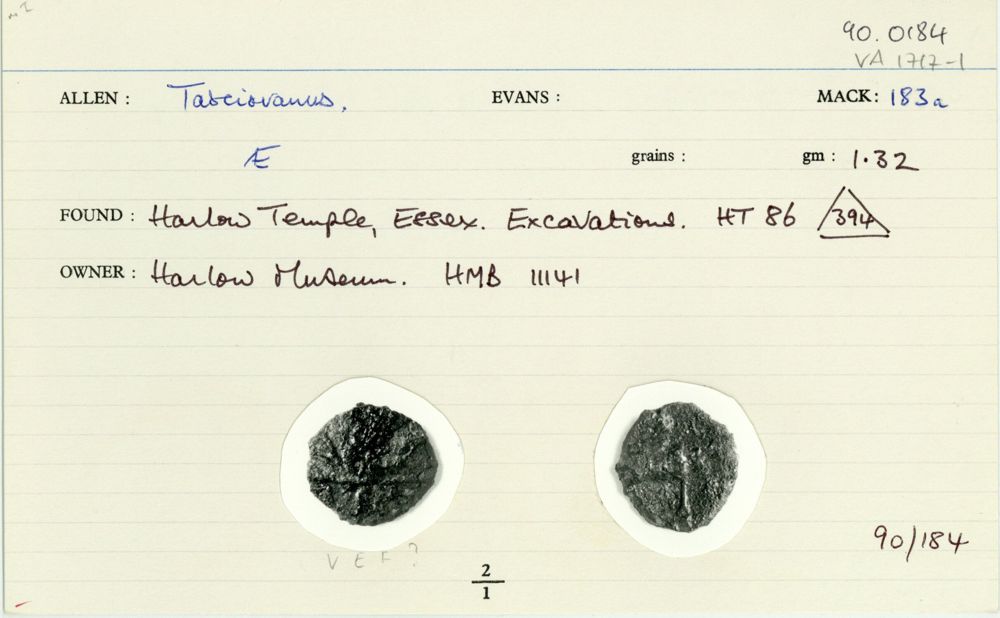 90.0184
VA 1717-1
ALLEN : Tasciovanus. EVANS : MACK: 183a
Æ grains : gm : 1.32
FOUND : Harlow Temple, Essex. Excavations. HT 86 394
OWNER : Harlow Museum. HMB 11141
V E F ?
90/184
2
1